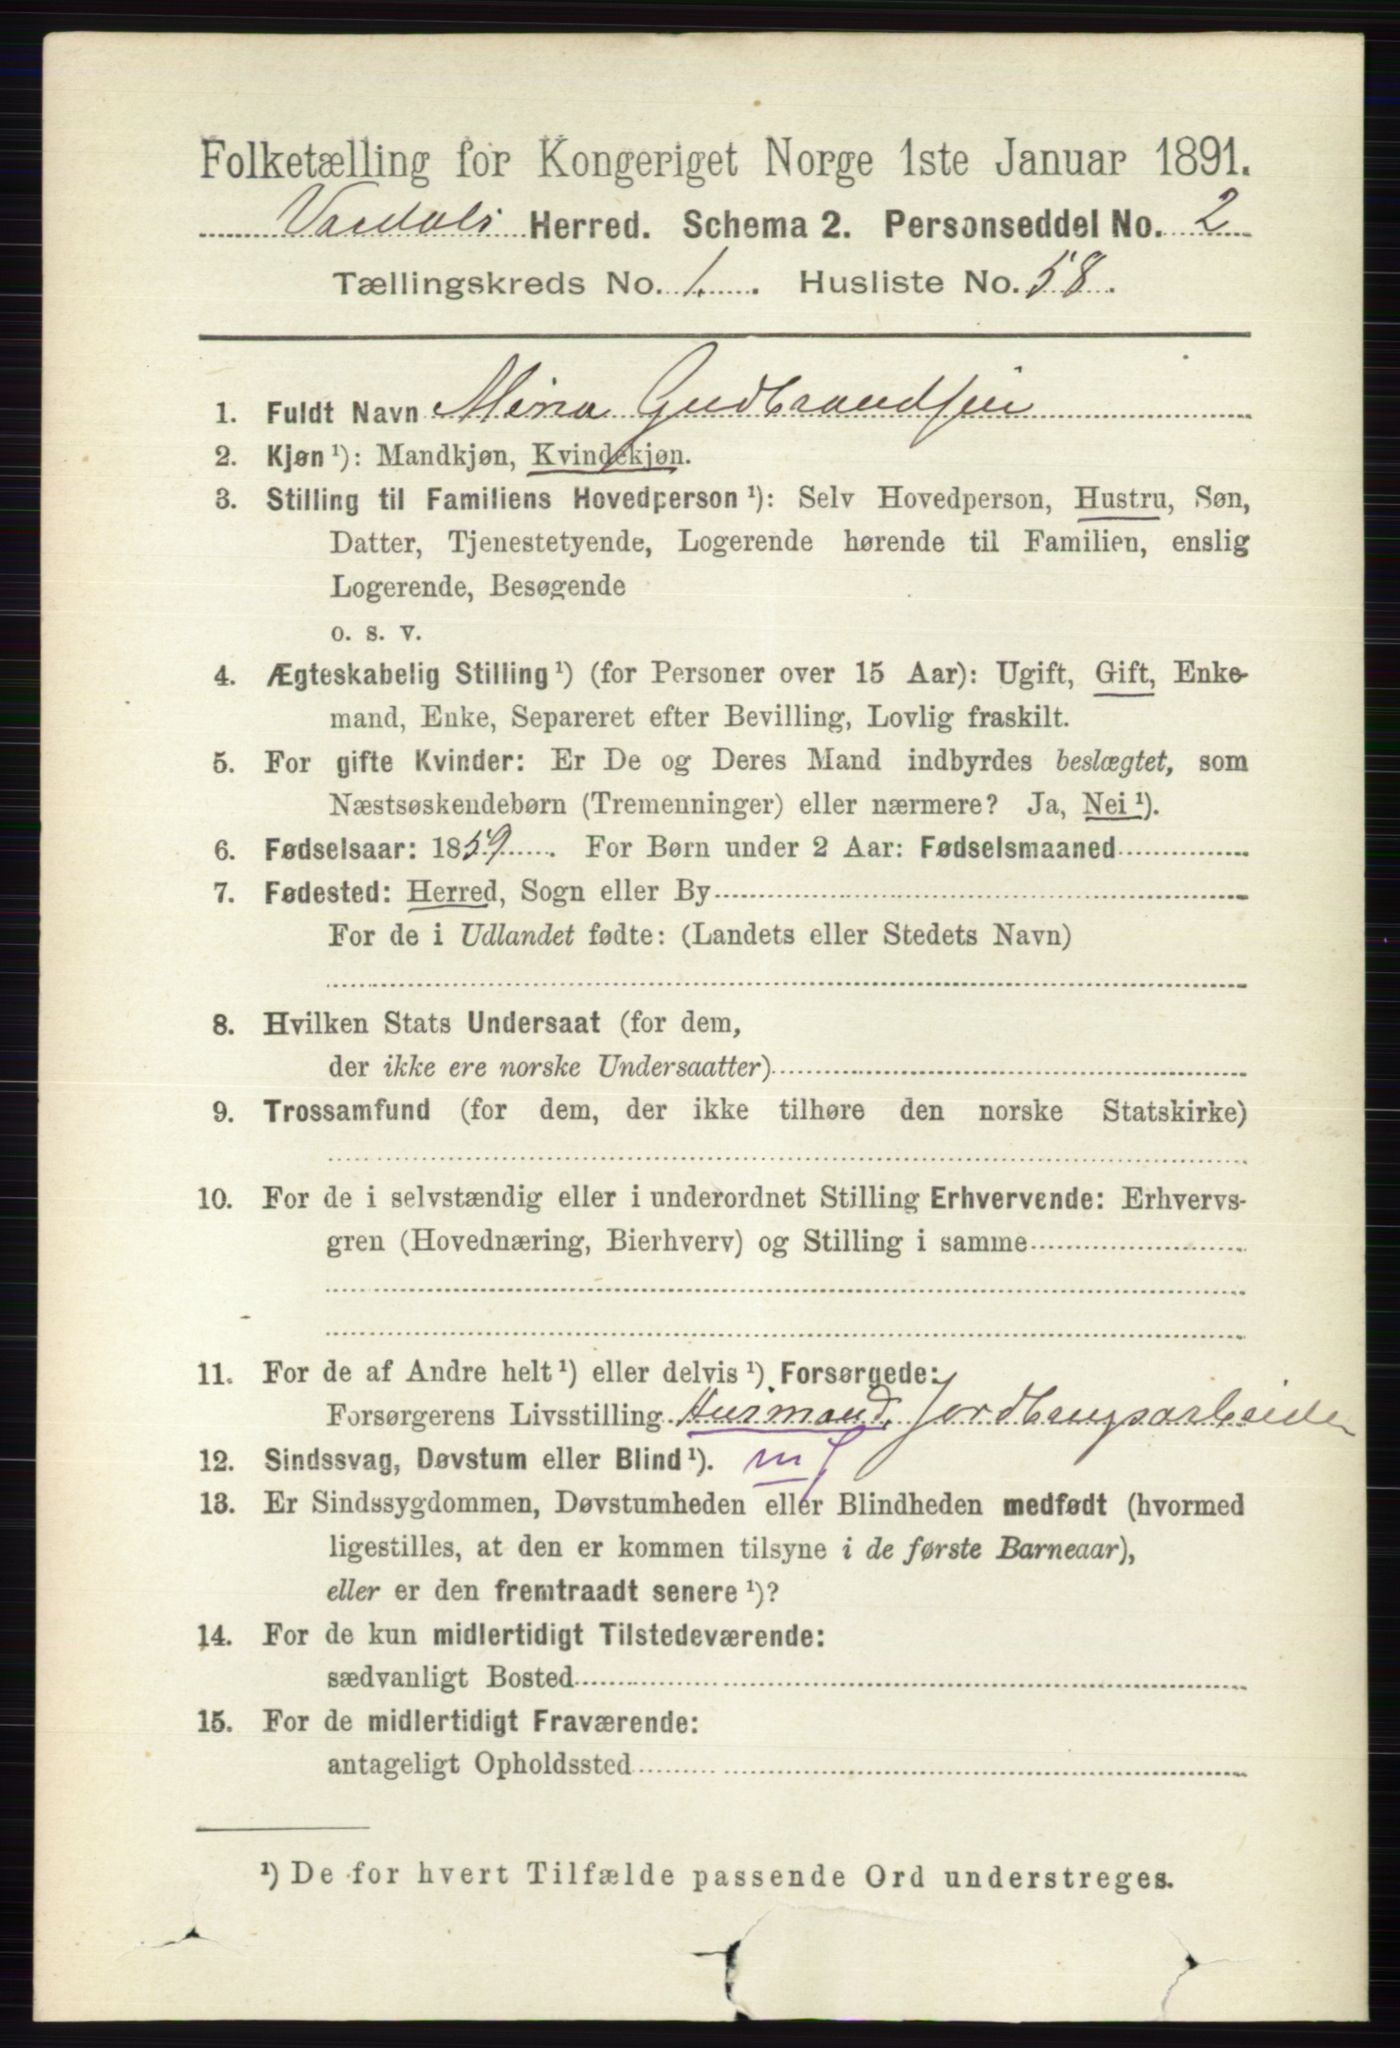 Folketælling for Kongeriget Norge 1ste Januar 1891.
Vardals Herred. Schema 2. Personseddel No. 2
Tællingskreds No. 1. Husliste No. 58.
1. Fuldt Navn Mina Gudbrandsen
2. Kjøn ¹): Mandkjøn, Kvindekjøn.
3. Stilling til Familiens Hovedperson ¹): Selv Hovedperson, Hustru, Søn,
Datter, Tjenestetyende, Logerende hørende til Familien, enslig
Logerende, Besøgende
o. s. v.
4. Ægteskabelig Stilling ¹) (for Personer over 15 Aar): Ugift, Gift, Enke-
mand, Enke, Separeret efter Bevilling, Lovlig fraskilt.
5. For gifte Kvinder: Er De og Deres Mand indbyrdes beslægtet, som
Næstsøskendebørn (Tremenninger) eller nærmere? Ja, Nei ¹).
6. Fødselsaar: 1859. For Børn under 2 Aar: Fødselsmaaned
7. Fødested: Herred, Sogn eller By
For de i Udlandet fødte: (Landets eller Stedets Navn)
8. Hvilken Stats Undersaat (for dem,
der ikke ere norske Undersaatter)
9. Trossamfund (for dem, der ikke tilhøre den norske Statskirke)
10. For de i selvstændig eller i underordnet Stilling Erhvervende: Erhvervs-
gren (Hovednæring, Bierhverv) og Stilling i samme
11. For de af Andre helt ¹) eller delvis ¹) Forsørgede:
Forsørgerens Livsstilling Husmand, Jordbrugsarbeider
12. Sindssvag, Døvstum eller Blind ¹).
13. Er Sindssygdommen, Døvstumheden eller Blindheden medfødt (hvormed
ligestilles, at den er kommen tilsyne i de første Barneaar),
eller er den fremtraadt senere ¹)?
14. For de kun midlertidigt Tilstedeværende:
sædvanligt Bosted
15. For de midlertidigt Fraværende:
antageligt Opholdssted
¹) De for hvert Tilfælde passende Ord understreges.